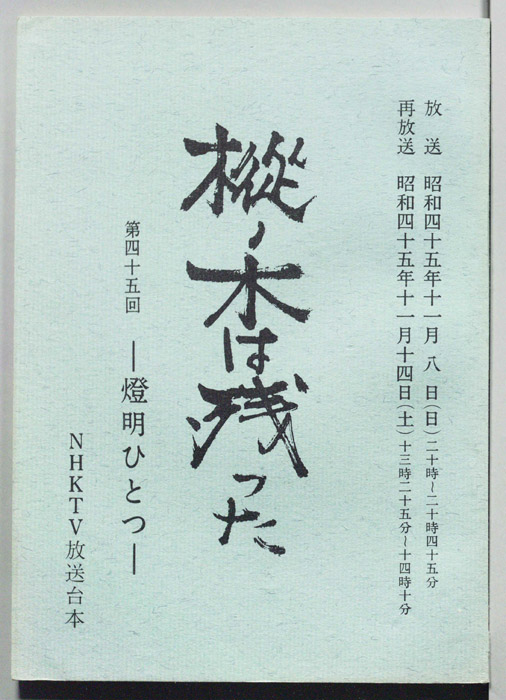 放送 昭和四十五年十一月八日(日)二十時~二十時四十五分
再放送 昭和四十五年十一月十四日(土)十三時二十五分~十四時十分
樅ノ木は残った
第四十五回 ―燈明ひとつ―
NHKTV放送台本